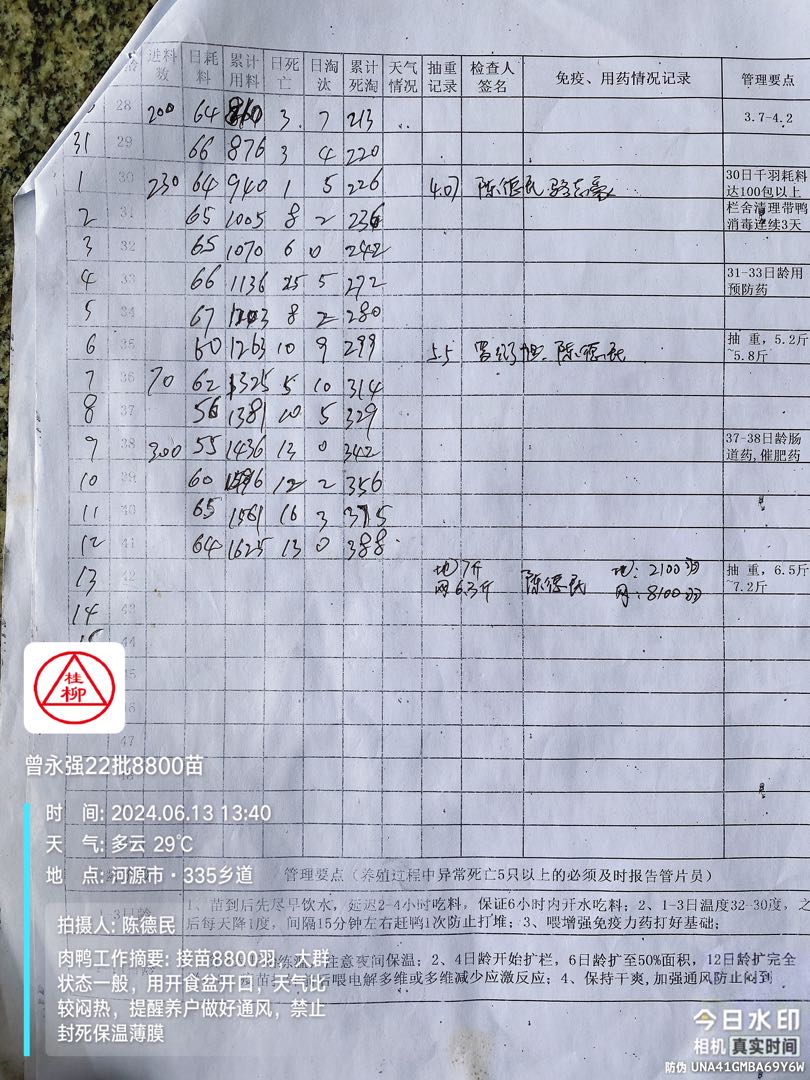 龄 进料数 日耗料 累计用料 日死亡 日淘汰 累计死淘 天气情况 抽重记录 检查人签名 免疫、用药情况记录 管理要点
28 200 64 3 7 213 3.7-4.2
31 29 66 876 3 4 220
1 30 230 64 940 1 5 226 4.07 陈德民 30日千羽耗料达100包以上
2 31 65 1005 8 2 236 栏舍清理带鸭消毒连续3天
3 32 65 1070 6 0 242
4 33 66 1136 25 5 272 31-33日龄用预防药
5 34 67 1203 8 2 280
6 35 60 1263 10 9 299 5.5 陈德民 抽重,5.2斤~5.8斤
7 36 70 62 1325 5 10 314
8 37 56 1381 10 5 329
9 38 300 55 1436 13 0 342 37-38日龄肠道药,催肥药
10 39 60 1496 12 2 356
11 65 1561 16 3 375
12 41 64 1625 13 0 388
13 42 地7斤 网6.3斤 陈德民 地:2100羽 网:8100羽 抽重,6.5斤~7.2斤
14 43
44
47
桂柳
曾永强22批8800苗
时 间: 2024.06.13 13:40
天 气: 多云 29℃
地 点: 河源市·335乡道
管理要点(养殖过程中异常死亡5只以上的必须及时报告管片员)
1、苗到后先尽早饮水,延迟2-4小时吃料,保证6小时内开水吃料;2、1-3日温度32-30度,之
后每天降1度,间隔15分钟左右赶鸭1次防止打堆;3、喂增强免疫力药打好基础;
注意夜间保温;2、4日龄开始扩栏,6日龄扩至50%面积,12日龄扩完全
后喂电解多维或多维减少应激反应;4、保持干爽,加强通风防止闷到
拍摄人: 陈德民
肉鸭工作摘要: 接苗8800羽,大群
状态一般,用开食盆开口,天气比
较闷热,提醒养户做好通风,禁止
封死保温薄膜
今日水印
相机 真实时间
防伪 UNA41GMBA69Y6W